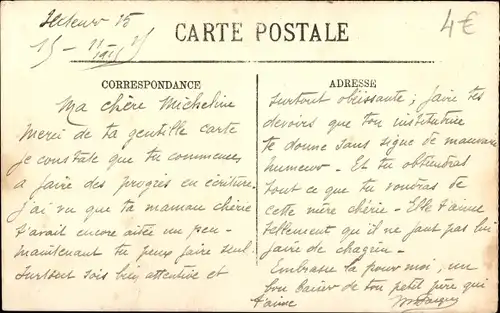 Secteur 15
15-11-15
4€
CARTE POSTALE
CORRESPONDANCE
Ma chère Micheline
Merci de ta gentille carte
je constate que tu commences
a faire des progrès en écriture.
J'ai vu que ta maman chérie
t'avait encore aitée un peu -
maintenant tu peux faire seul.
Surtout sois bien attentive et
ADRESSE
surtout obéissante; faire tes
devoirs que ton institutrice
te donne sans signe de mauvaise
humeur - Et tu obtiendras
tout ce que tu voudras de
cette mère chérie - Elle t'aime
tellement qu'il ne faut pas lui
faire de chagrin.
Embrasse la pour moi, un
bon baiser de ton petit père qui
t'aime